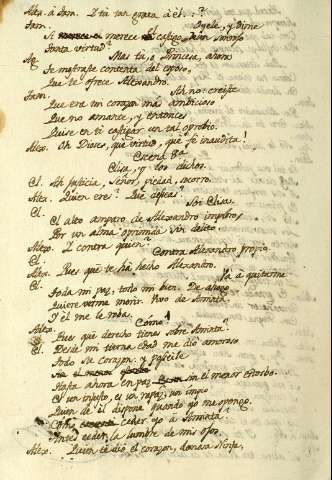 Alex. à Fam. I tu tan
Fam. Oyele, y dime
Si merece castigo
Tanta virtud?
Mas tu, o Princesa, ahora
contenta del esposo,
Que te ofrece Alexandro.
Fam. Ah no: creiste
Que era mi corazon mas ambicioso
Que no amante, y entonces
Quise en ti castigar un tal oprobio.
Alex. Oh Dioses, que virtud, que fe inaudita!
Escena 8ª
Elisa, y los dichos.
El. Ah justicia, Señor, piedad, socorro.
Alex. Quien eres? Que deseas?
Soi Elisa.
El.
El alto amparo de Alexandro imploro
Por un alma oprimida sin delito.
Alex. I contra quien?
El. Contra Alexandro propio.
Alex. Pues què te ha hecho Alexandro.
El. Va a quitarme
Toda mi paz, todo mi bien. De
Quiere verme morir. Vivo de Aminta,
Y èl me le roba.
Alex. Cómo!
Pues què derecho tienes sobre Aminta?
El. Desde mi tierna edad me diò amoroso
Todo su corazon. y poseile
Hasta ahora en paz sin el menor estorbo.
Es un injusto, es un rapaz, un impio
Quien de èl dispone quando yo me opongo.
Como ceder yo a Aminta?
Antes ceder la lumbre de mis ojos.
Alex. Quien te diò el corazon, donosa Ninfa,